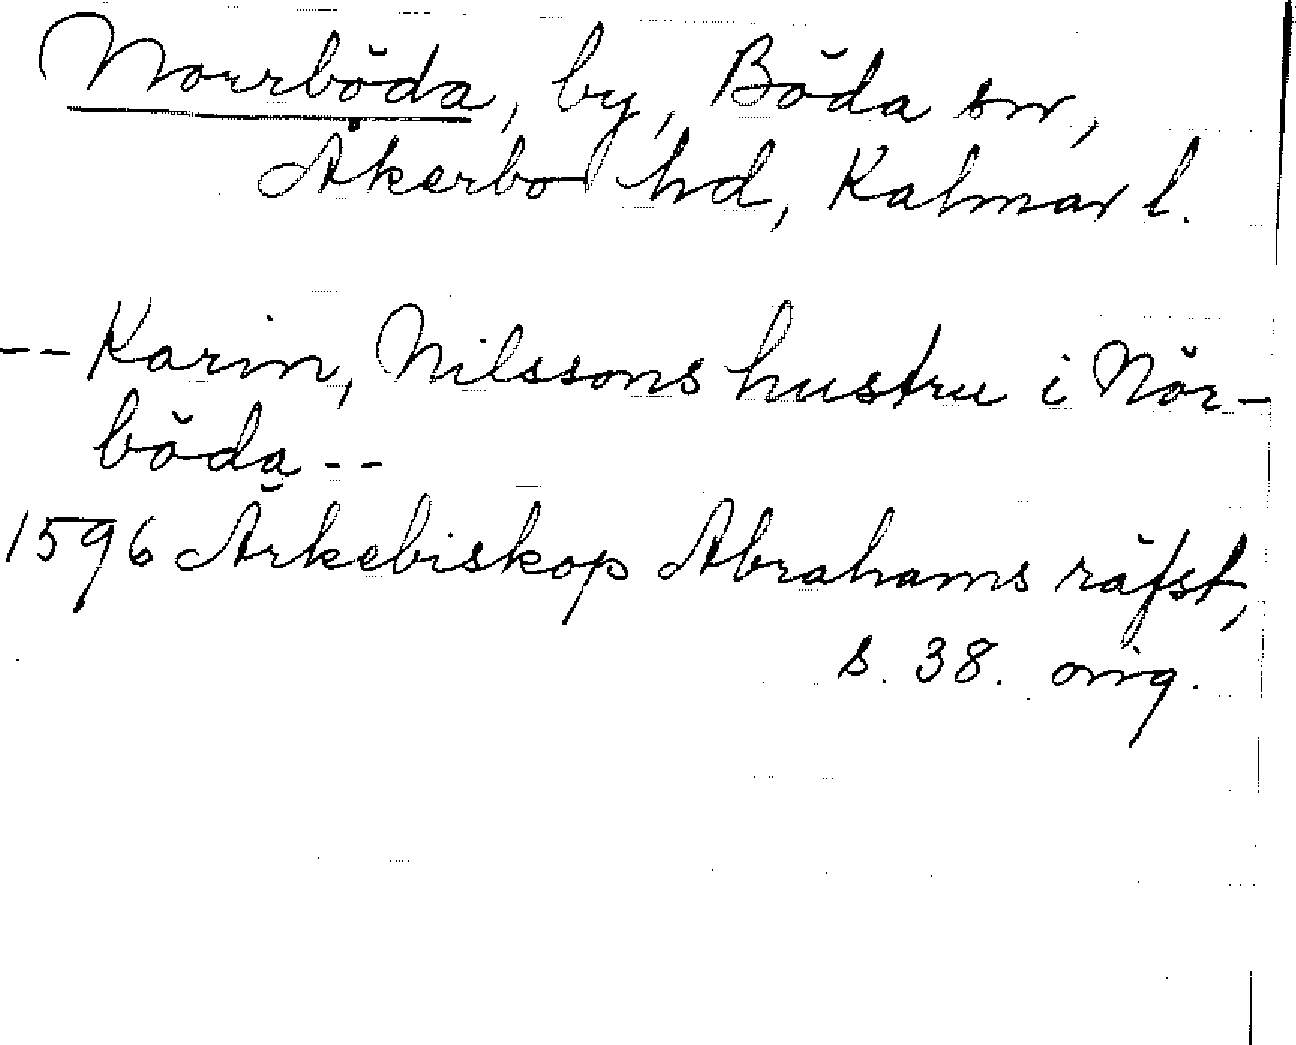 Norrböda, by, Böda sn,
Åkerbo hd, Kalmar l.
-- Karin, Nilssons hustru i Nör-
böda --
1596 Ärkebiskop Abrahams räfst,
s. 38. orig.